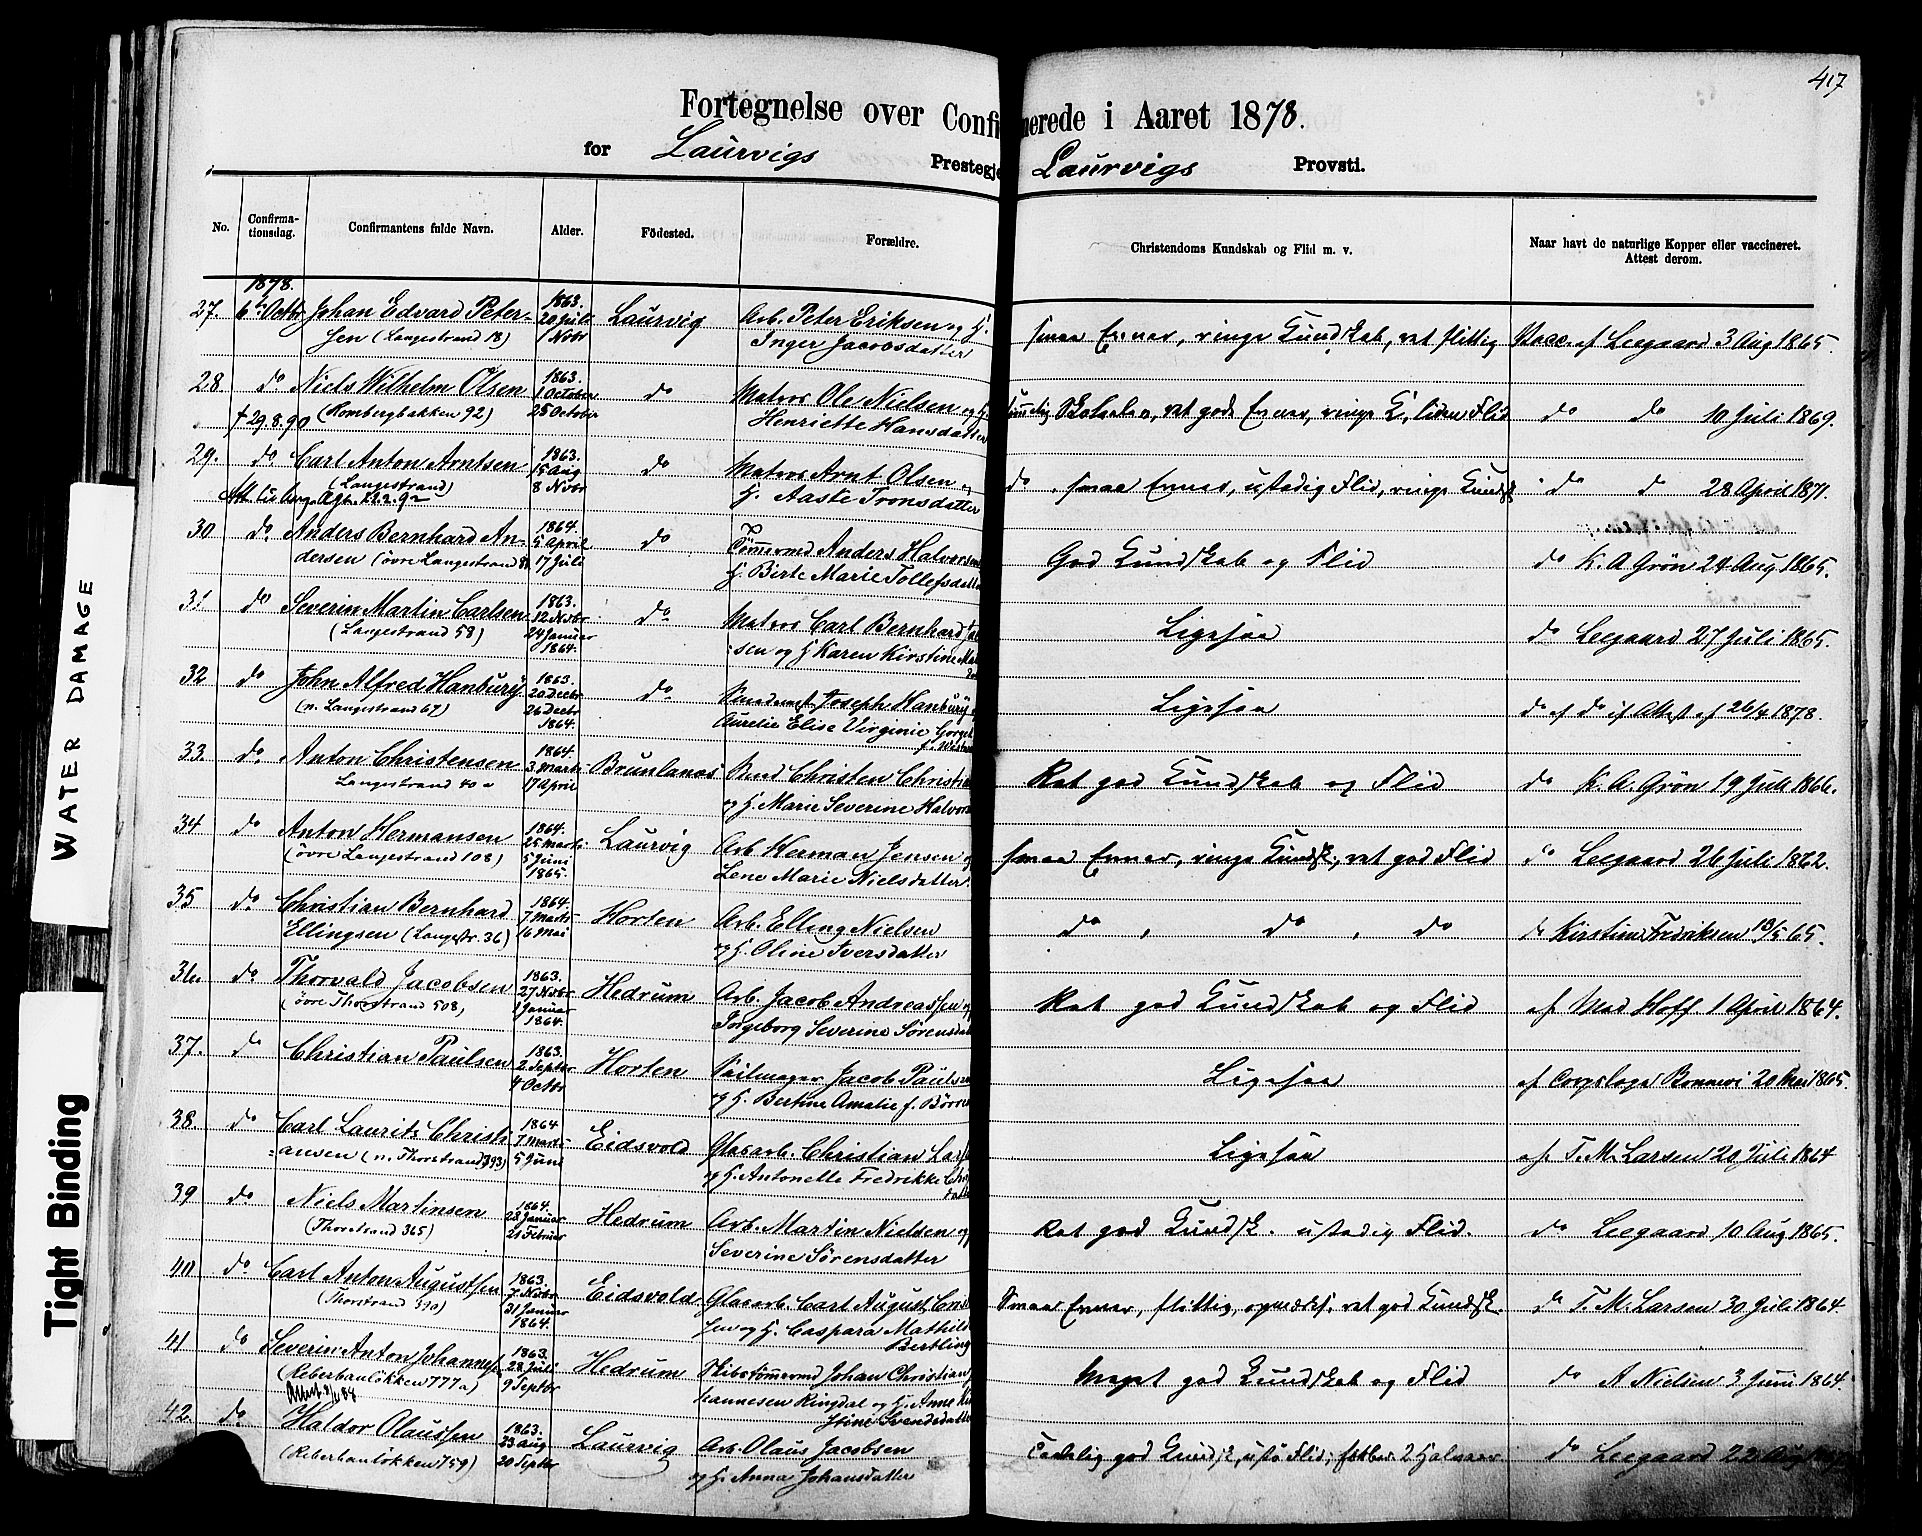 417
Fortegnelse over Confirmerede i Aaret 1878.
for Laurvigs Prestegje Laurvigs Provsti.
No. Confirma-tionsdag. Confirmantens fulde Navn. Alder. Födested. Forældre. Christendoms Kundskab og Flid m. v. Naar havt de naturlige Kopper eller vaccineret. Attest derom.
1878.
27. 6te Octbr Johan Edvard Peter- 1863. 20 Juli Laurvig Arb. Peter Eriksen og H. smaa Evner, ringe Kundskab, ret flittig Vacc. af Leegaard 3 Aug 1865.
sen (Langestrand 18) 1 Novbr Inger Jacobsdatter
28. do Niels Wilhelm Olsen 1863. 1 October do Matros Ole Nielsen og H. ret gode Evner, ringe K., liden Flid do do 10 Juli 1869.
† 29.8.90 (Rombergbakken 92) 25 October Henriette Hansdatter
29. do Carl Anton Arntsen 1863. 15 Aug do Matros Arnt Olsen og do, smaa Evner, ustadig Flid, ringe Kundsk do do 28 April 1871.
(Langestrand) 8 Novbr H. Aaste Tronsdatter
22.2.92
30 do Anders Bernhard An- 1864. 5 April do Tømmermd Anders Halvorsen God Kundskab og Flid do K. A Grön 24 Aug 1865.
dersen (övre Langestrand 17 Juli H. Birte Marie Tollefsdatter
31 do Severin Martin Carlsen 1863. 12 Novbr do Matros Carl Bernhard Ligesaa do Leegaard 27 Juli 1865.
(Langestrand 58) 24 Januar 1864. sen og H Karen Kirstine
32 do John Alfred Hanbury 1863. 20 Decbr do Joseph Hanbury Ligesaa do af do if Attest af 26/4 1878.
(n. Langestrand 67) 26 Decbr 1864. Aurelie Elise Virginie
33. do Anton Christensen 1864. 3 Marts Brunlanæs Christen Christen Ret god Kundskab og Flid do K. A. Grön 19 Juli 1866.
Langestrand 40 a 17 April og H. Marie Severine Halvors
34 do Anton Hermansen 1864. 25 Marts Laurvig Arb Herman Jensen og smaa Evner, ringe Kundsk, ret god Flid do Leegaard 26 Juli 1862.
(övre Langestrand 108) 5 Juni 1865 Lene Marie Nielsdatter
35 do Christian Bernhard 1864. 7 Marts Horten Arb. Elling Nielsen do, do, do do Kirstine Fredriksen 18/5 65.
Ellingsen (Langestr. 36) 16 Mai og H. Oline Iversdatter
36. do Thorvald Jacobsen 1863. 27 Novbr Hedrum Arb. Jacob Andreassen og Ret god Kundskab og Flid af Mad Hoff. 1 April 1864.
(övre Thorstrand 508) 1 Januar 1864. Torgeborg Severine Sörensdat
37. do Christian Paulsen 1863. 2 Septbr Horten Seilmager Jacob Paulsen Ligesaa af Corpslæge Bonnevi 20 Mai 1865.
4 Octbr og H. Bertine Amalie f. Börre
38. do Carl Laurits Christi- 1864 7 Marts Eidsvold Glasarb. Christian Lar Ligesaa af T. M. Larsen 20 Juli 1864
ansen (n. Thorstrand 393) 5 Juni og H. Antonette Fredrikke
39 do Niels Martinsen 1864. 28 Januar Hedrum Arb. Martin Nielsen og Ret god Kundsk. ustadig Flid. do Leegaard 10 Aug 1865.
(Thorstrand 365) 21 Februar Severine Sörensdatter
40. do Carl Anton Augustsen 1863. 7 Novbr Eidsvold Glasarb. Carl August Smaa Evner, flittig, opmærks. ret god Kundsk. do T. M. Larsen 30 Juli 1864.
(Thorstrand 390) 31 Januar 1864. sen og H. Caspara Mathilde Bertling
41 do Severin Anton Johannes 1863. 28 Juli Hedrum Skibstømmermd Johan Christian Meget god Kundskab og Flid do A Nielsen 3 Juni 1864.
(Reberbanlökken 777a) 9 Septbr hannesen Ringdal og H. Anne Kir
stine Svendsdatter
42. do Haldor Olaussen 1863. 23 Aug Laurvig Arb. Olaus Jacobsen Temmelig god Kundsk, Flid; do Leegaard 22 Aug
(Reberbanlökken 759) 20 Septbr og H. Anna Johansdatter
WATER DAMAGE
Tight Binding